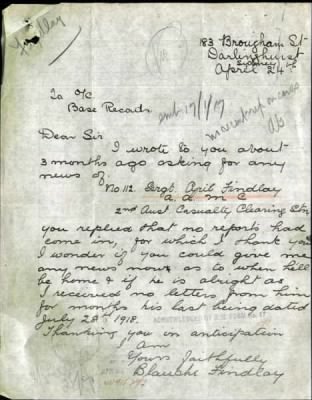 Findlay
183 Brougham St
Darlinghurst
Sydney
April 24th
To O/C
Base Records
emb 17/1/19
Dear Sir
I wrote to you about
3 months ago asking for any
news of.
No 112. Sergt April Findlay
A. A. M. C
2nd Aust Casualty Clearing Stn
you replied that no reports had
come in, for which I thank you
I wonder if you could give me
any news now as to when he'll
be home & if he is alright as
I received no letters from him
for months his last being dated
July 28th 1918.
Thanking you in anticipation
I Am
Yours faithfully
Blanche Findlay